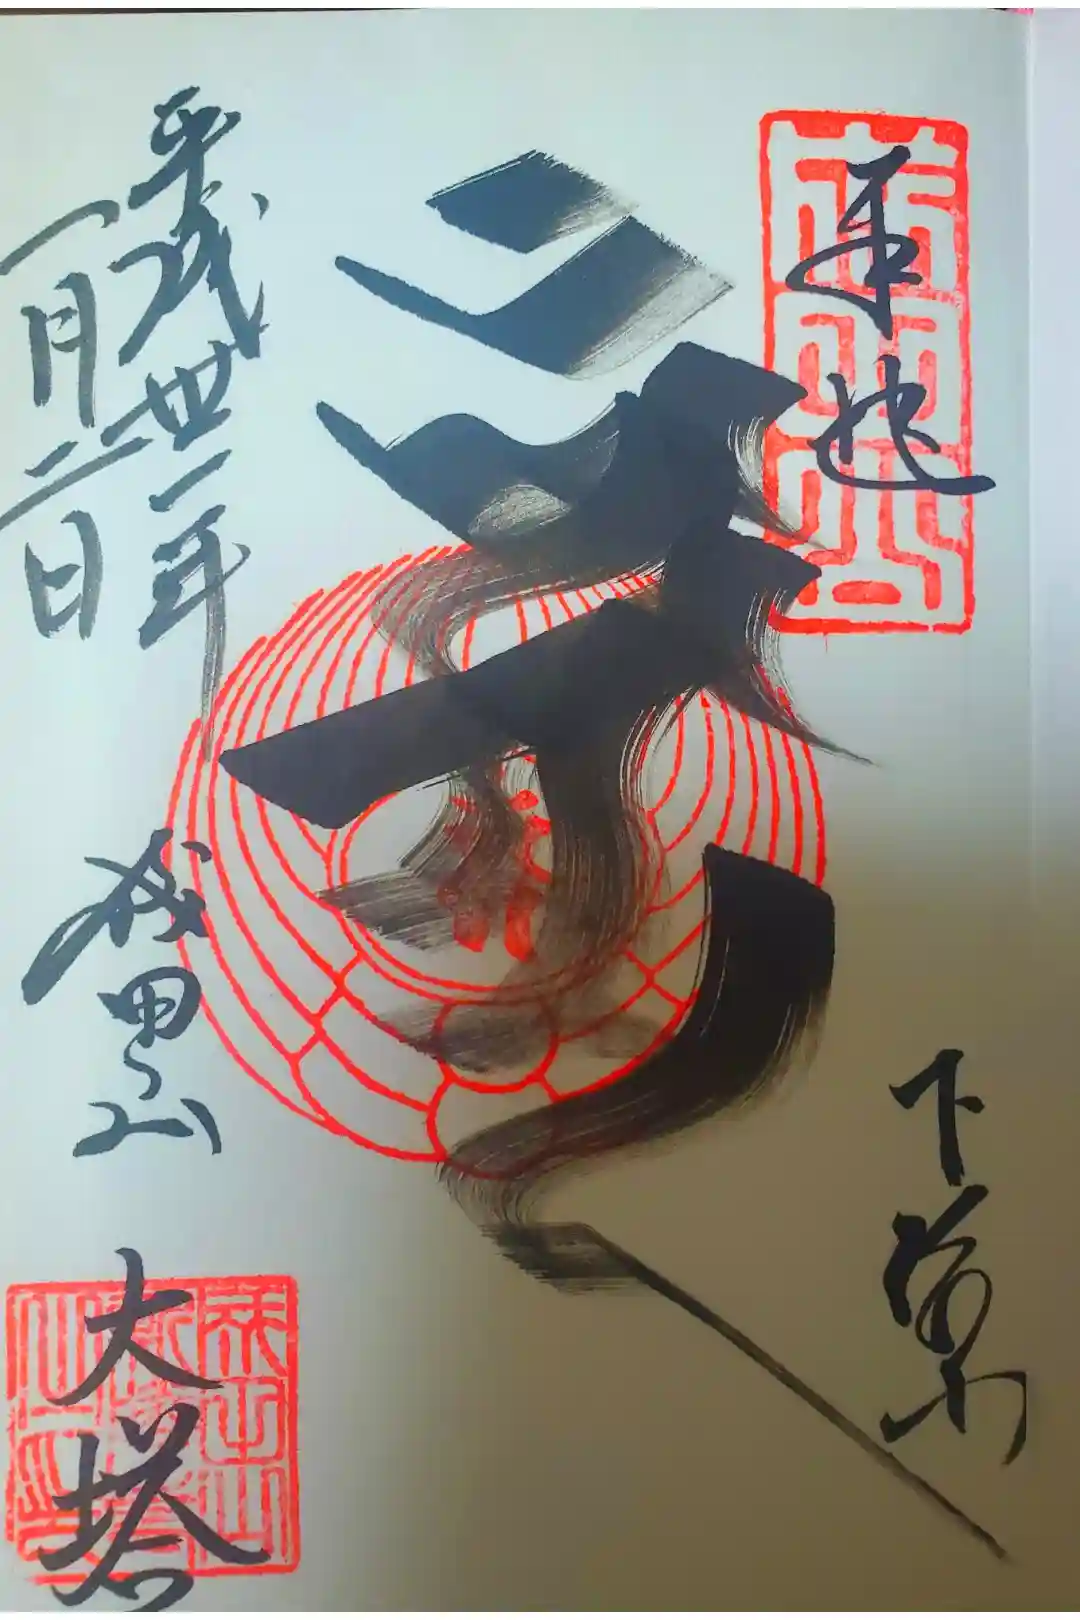 奉拝
下総
平成卅一年
一月二日
成田山
大塔
成田山